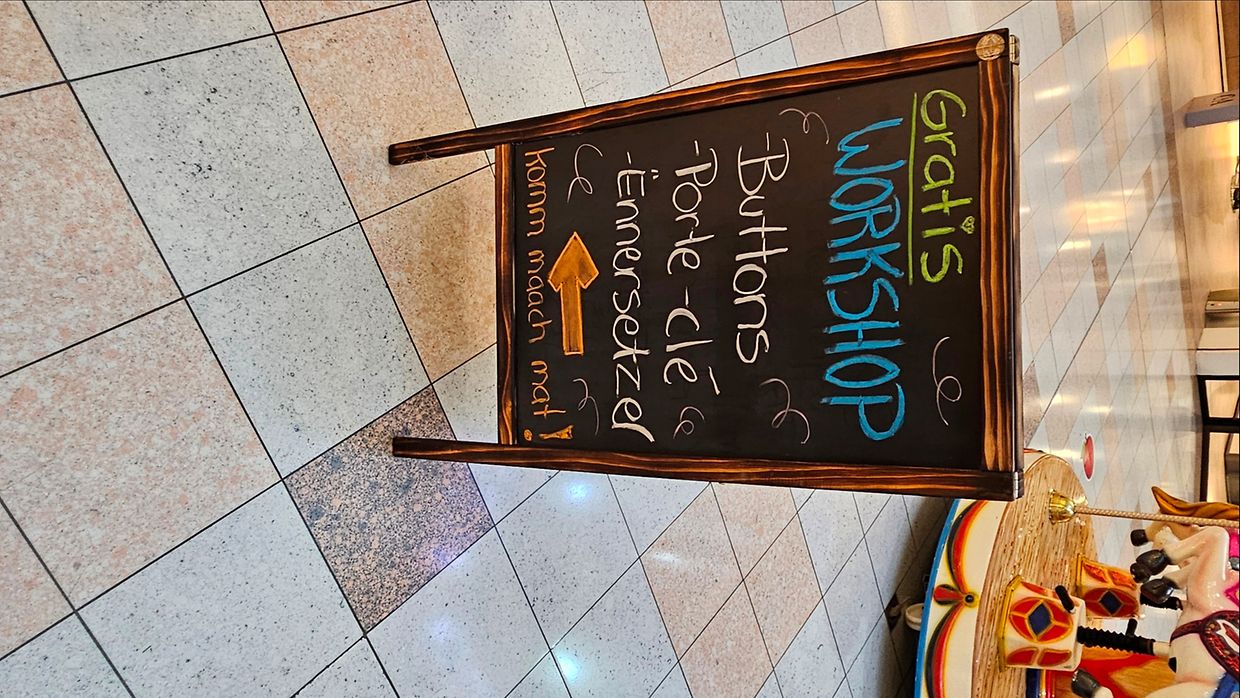 Gratis
WORKSHOP
-Buttons
-Porte-clé
-Ënnersetzer
komm maach mat!